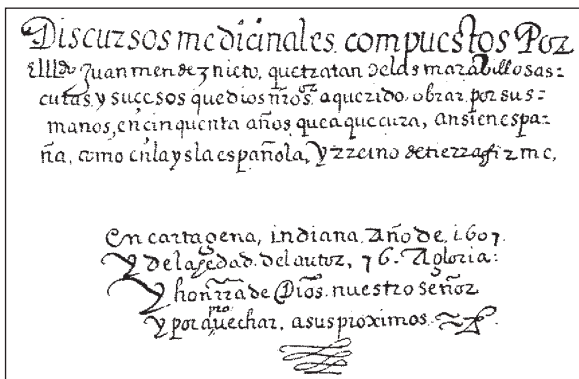 Discursos medicinales. compuestos Por
Elldo Juan mendez nieto, que tratan de las marabillosas=
curas y sucesos que dios nro sor a querido. obrar, por sus=
manos, en cinquenta años que a que cura, ansi en espa=
ña, como en la ysla española, y rreino de tierra firme,
En cartagena, indiana. Año de, 1607.
Y de la hedad. del autor, 76. A gloria:
Y honrra de Dios. nuestro señor
Y por a pro uechar, a sus proximos.